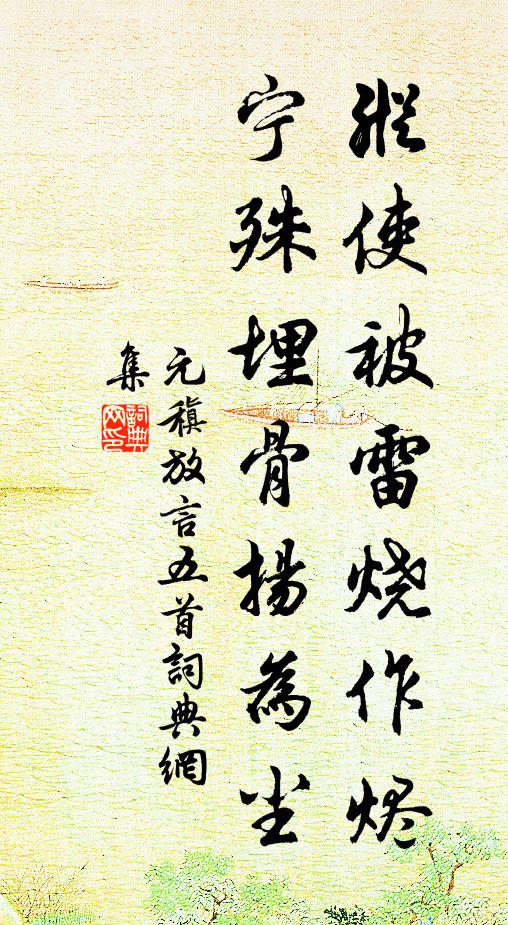 縱使被雷烧作烬
宁殊埋骨揚為尘
元稹放言五首詞典網
集
詞典
网印